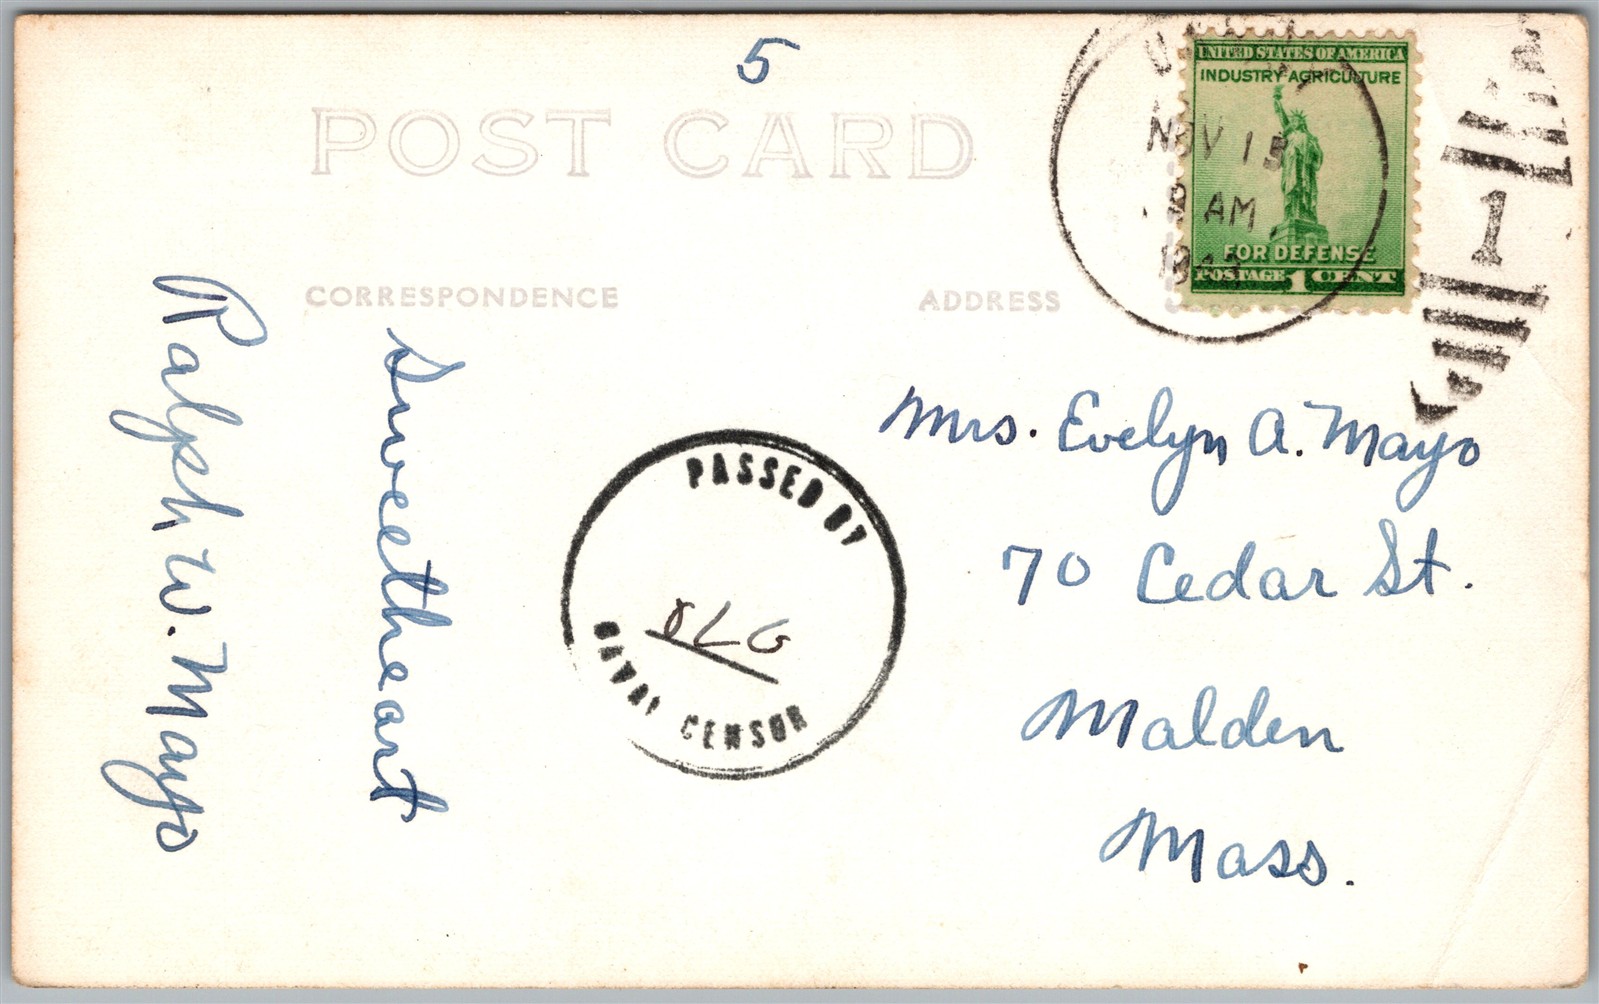 5
POST CARD
CORRESPONDENCE
ADDRESS
UNITED STATES OF AMERICA
INDUSTRY AGRICULTURE
FOR DEFENSE
POSTAGE 1 CENT
NOV 15
AM
1
Sweetheart
Ralph W. Mayo
PASSED BY
NAVAL CENSOR
Mrs. Evelyn A. Mayo
70 Cedar St.
Malden
Mass.